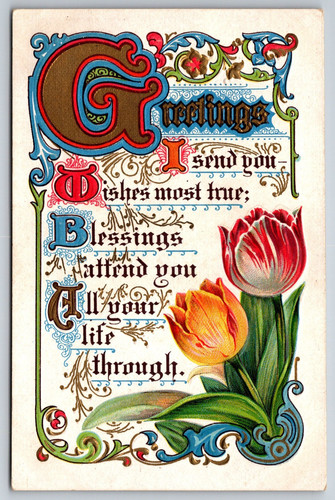 Greetings
I send you—
Wishes most true;
Blessings
attend you
All your
life
through.